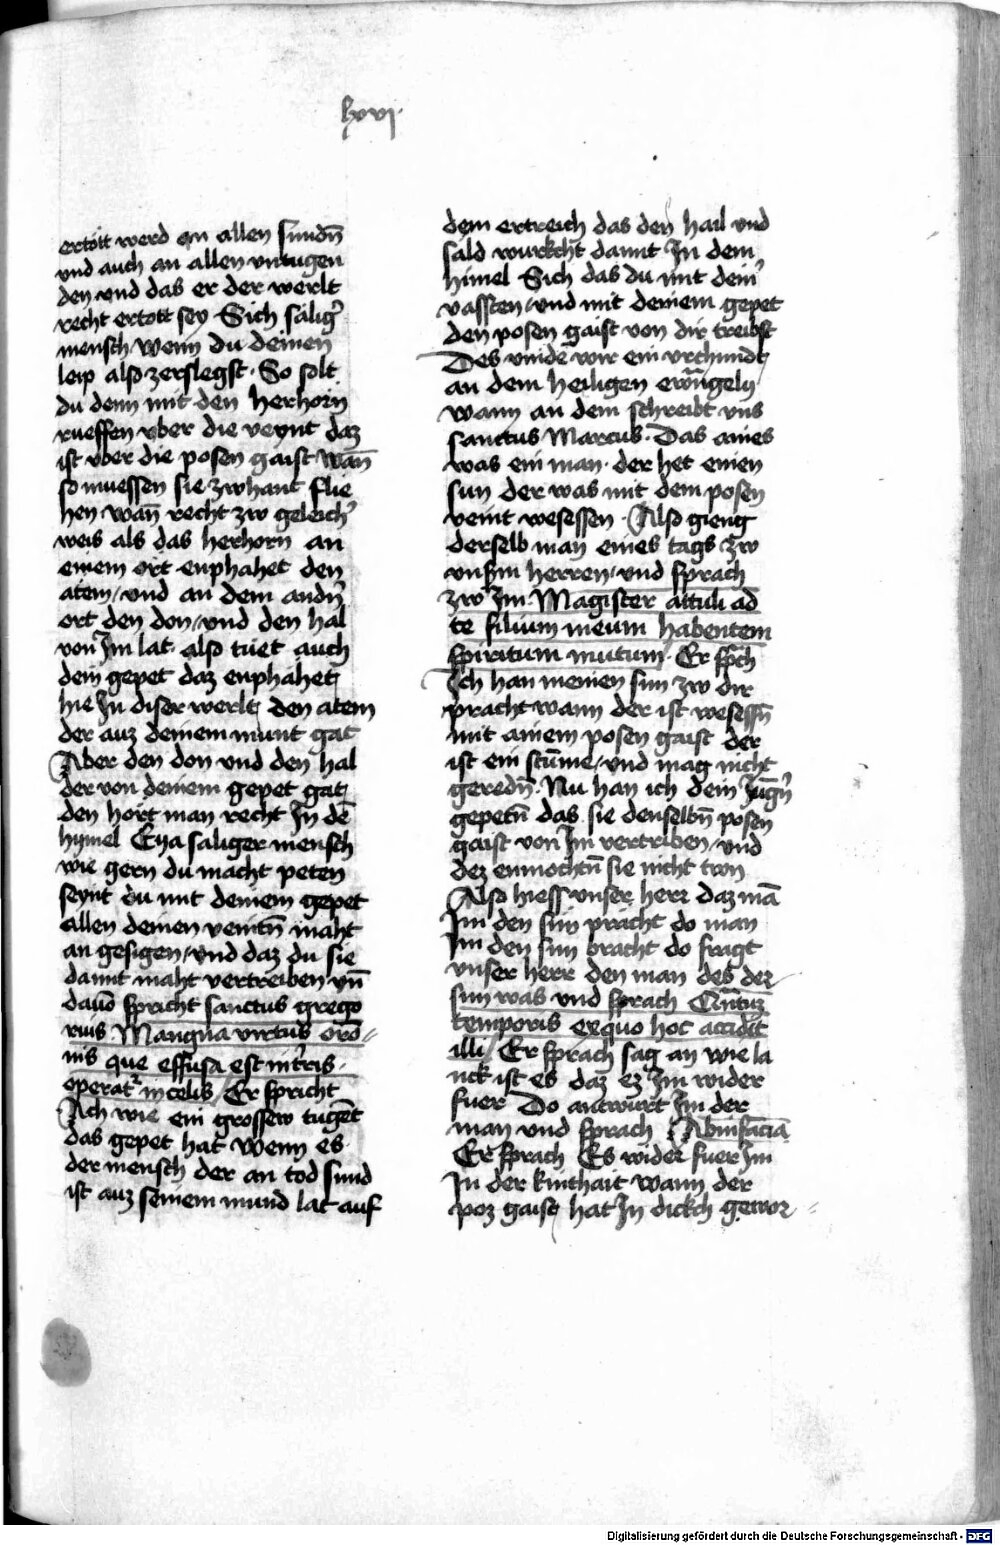 lxvj
ertött werd an allen sundn̄
vnd auch an allen vntugen
den vnd das er der werlt
recht ertott sey Sich sälig̛
mensch wenn du deinen
leip also zerslegst · So solt
du denn mit den herhorn
rueffen vber die veynt daz
ist vber die posen gaist wan̄
so muessen sie zwhant flie
hen wan̄ recht zw geleich̛
weis als das herhorn an
einem ort enphahet den
atem / vnd an dem andn̛
ort den don / vnd den hal
von Im lat · also tüet auch
dein gepet daz enphähet
hie In diser werlt den atem
der auz deinem munt gat
Aber den don vnd den hal
der von deinem gepet gat
den hört man recht In dē
hymel Eya saliger mensch
wie gern du macht peten
seynt du mit deinem gepet
allen deinen veintn̄ maht
an gesigen / vnd daz du sie
damit maht vertreiben vn̄
dauō spricht sanctus grego
rius Mangna virtus orō=
nis que effusa est in tr̄ris ·
operat² in celis / Er spricht
Ach wie ein grossew tugēt
das gepet hat wenn es
der mensch der an tod sund
ist auz seinem mund lat auf
dem ertreich das den hail vnd
säld wurkcht damit In dem
himel Sich das du mit dem̛
vassten / vnd mit deinem gepet
den posen gaist von dir treibst
Des vinde wir ein vrchundt
an dem heiligen ewāngely
wann an dem schreibt vns
sanctus Marcus · Das aines
was ein man · der het einen
sun der was mit dem posen
veint wesessen · Also gieng
derselb man eines tags zw
vnsm̄ herren / vnd sprach
zw Im · Magister attuli ad
te filium meum habentem
spiritum mutum · Er sp̄ch
Ich han meinen sun zw dir
pracht wann der ist wesessn̄
mit ainem posen gaist der
ist ein stūme / vnd mag nicht
geredn̄ · Nu han ich dein Jūgn̛
gepetn̄ das sie denselbn̄ posen
gaist von Im vertriben / vnd
dez enmochtn̄ sie nicht twn
Also hiess vnser herr daz mā
Im den sun pracht do man
Im den sun bracht do fragt
vnser herr den man des der
sun was vnd sprach Qn̄tuz
temporis ex quo hoc accidit
illi / Er sprach sag an wie la
nck ist es daz ez Im wider
fuer Do antwurt Im der
man vnd sprach Ab infācia
Er sprach Es wider fuer Im
In der kinthait wann der
poz gaist hat In dickch gewor=
Digitalisierung gefördert durch die Deutsche Forschungsgemeinschaft - DFG